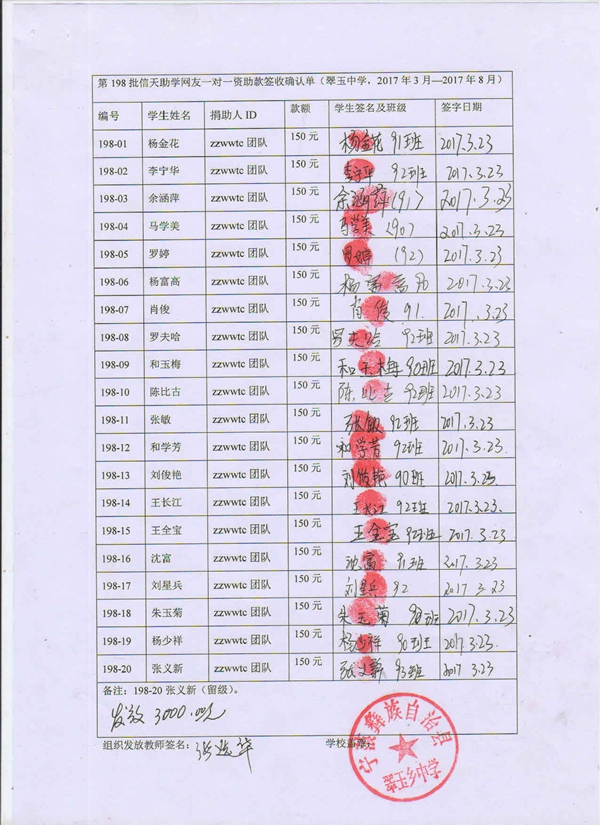 第 198 批信天助学网友一对一资助款签收确认单（翠玉中学，2017 年 3 月—2017 年 8 月）
编号 学生姓名 捐助人 ID 款额 学生签名及班级 签字日期
198-01 杨金花 zzwwtc 团队 150 元 杨金花 91班 2017.3.23
198-02 李宁华 zzwwtc 团队 150 元 李宁华 92班 2017.3.23
198-03 余涵萍 zzwwtc 团队 150 元 余涵萍 (91) 2017.3.23
198-04 马学美 zzwwtc 团队 150 元 马学美 (90) 2017.3.23
198-05 罗婷 zzwwtc 团队 150 元 罗婷 (92) 2017.3.23
198-06 杨富高 zzwwtc 团队 150 元 杨富高 2017.3.23
198-07 肖俊 zzwwtc 团队 150 元 肖俊 91. 2017.3.23
198-08 罗夫哈 zzwwtc 团队 150 元 罗夫哈 92班 2017.3.23
198-09 和玉梅 zzwwtc 团队 150 元 和玉梅 90班 2017.3.23
198-10 陈比古 zzwwtc 团队 150 元 陈比古 92班 2017.3.23
198-11 张敏 zzwwtc 团队 150 元 张敏 92班 2017.3.23
198-12 和学芳 zzwwtc 团队 150 元 和学芳 92班 2017.3.23
198-13 刘俊艳 zzwwtc 团队 150 元 刘俊艳 90班 2017.3.23
198-14 王长江 zzwwtc 团队 150 元 王长江 92班 2017.3.23.
198-15 王全宝 zzwwtc 团队 150 元 王全宝 92班 2017.3.23
198-16 沈富 zzwwtc 团队 150 元 沈富 91班 2017.3.23
198-17 刘星兵 zzwwtc 团队 150 元 刘星兵 92 2017.3.23
198-18 朱玉菊 zzwwtc 团队 150 元 朱玉菊 2017.3.23
198-19 杨少祥 zzwwtc 团队 150 元 杨少祥 90班 2017.3.23
198-20 张义新 zzwwtc 团队 150 元 张义新 93班 2017 3.23
备注：198-20 张义新（留级）。
发放 3000.00元
组织发放教师签名： 学校盖章：
宁蒗彝族自治县
翠玉乡中学